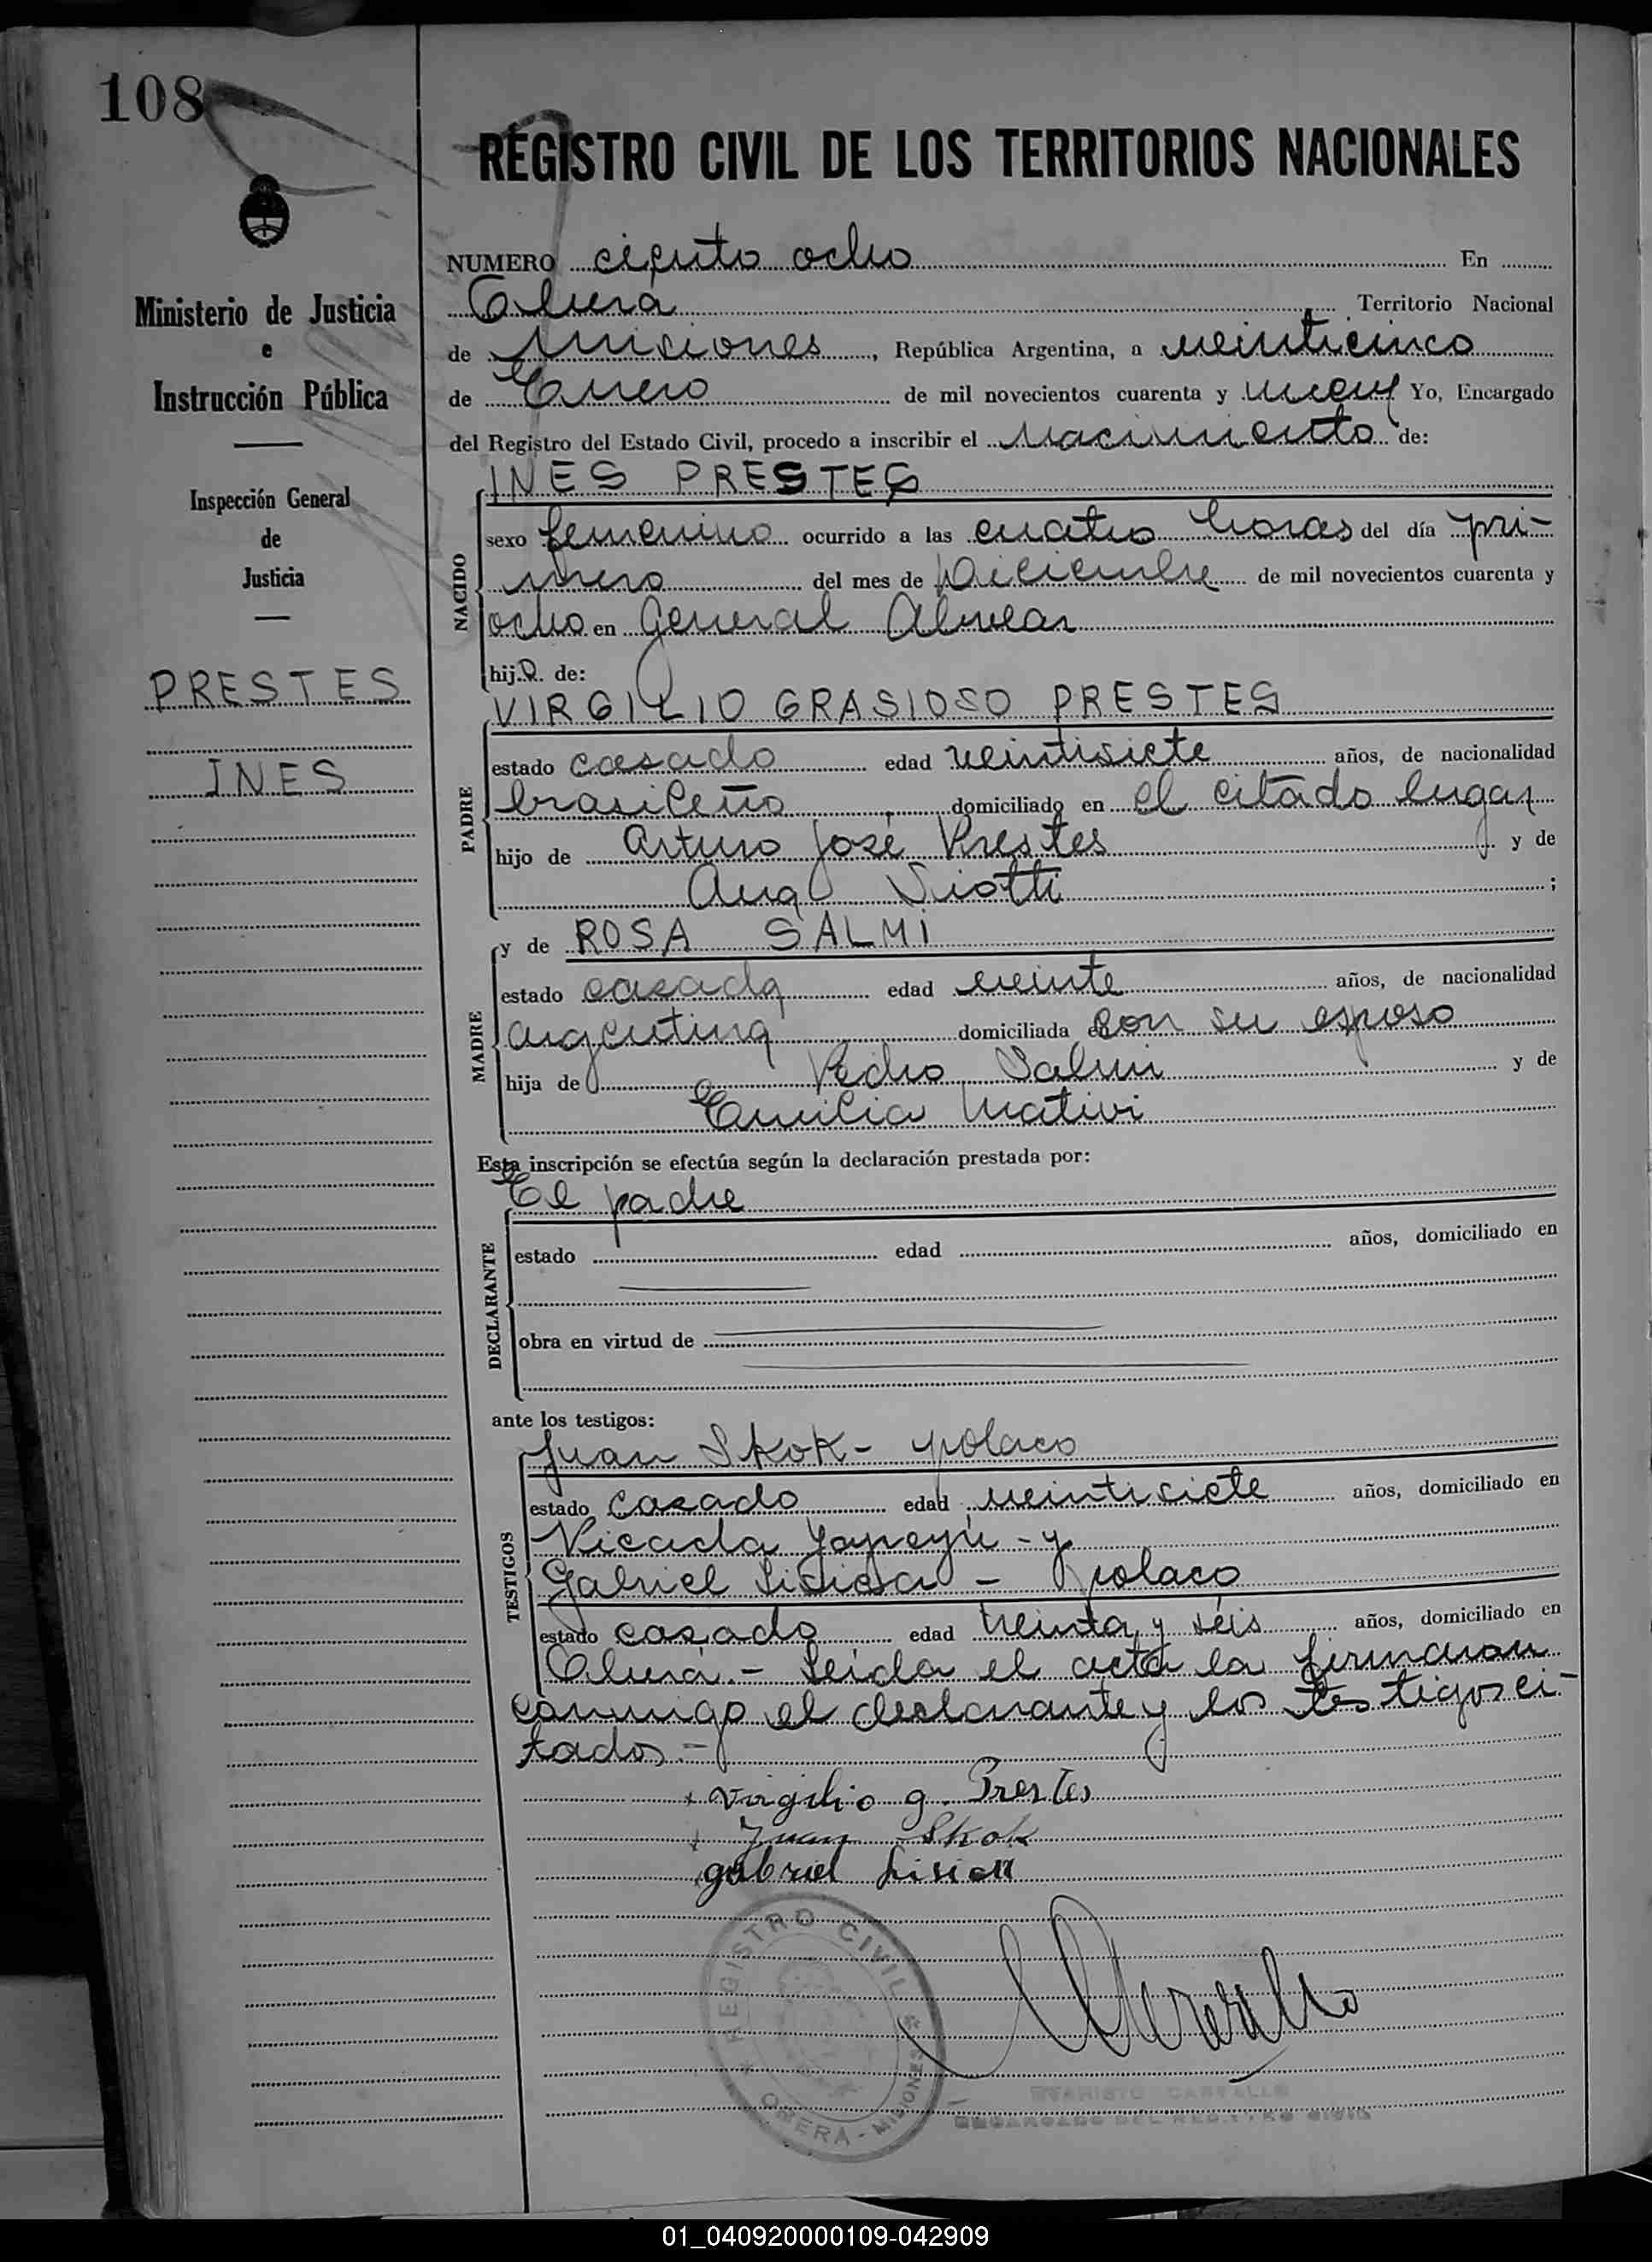 108
REGISTRO CIVIL DE LOS TERRITORIOS NACIONALES
Ministerio de Justicia
e
Instrucción Pública
Inspección General
de
Justicia
PRESTES
INES
NUMERO ciento ocho En
Oberá Territorio Nacional
de Misiones, República Argentina, a veinticinco
de Enero de mil novecientos cuarenta y nueve Yo, Encargado
del Registro del Estado Civil, procedo a inscribir el nacimiento de:
INES PRESTES
NACIDO
sexo femenino ocurrido a las cuatro horas del día pri-
mero del mes de Diciembre de mil novecientos cuarenta y
ocho en General Alvear
hija de:
VIRGILIO GRASIOSO PRESTES
PADRE
estado casado edad veintisiete años, de nacionalidad
brasileño domiciliado en el citado lugar
hijo de Arturo José Prestes y de
Ana Siotti;
y de ROSA SALMI
MADRE
estado casada edad veinte años, de nacionalidad
argentina domiciliada con su esposo
hija de Pedro Salmi y de
Emilia Mativi
Esta inscripción se efectúa según la declaración prestada por:
El padre
DECLARANTE
estado edad años, domiciliado en
obra en virtud de
ante los testigos:
Juan Skok - polaco
TESTIGOS
estado casado edad veintisiete años, domiciliado en
Picada Yapeyú - y
Gabriel - polaco
estado casado edad treinta y séis años, domiciliado en
Oberá. - Leída el acta la firmaron
conmigo el declarante y los testigos ci-
tados. -
Virgilio g. Prestes
Juan Skok
gabriel
REGISTRO CIVIL
OBERA - MISIONES
ENCARGADO DEL REGISTRO CIVIL
01_040920000109-042909